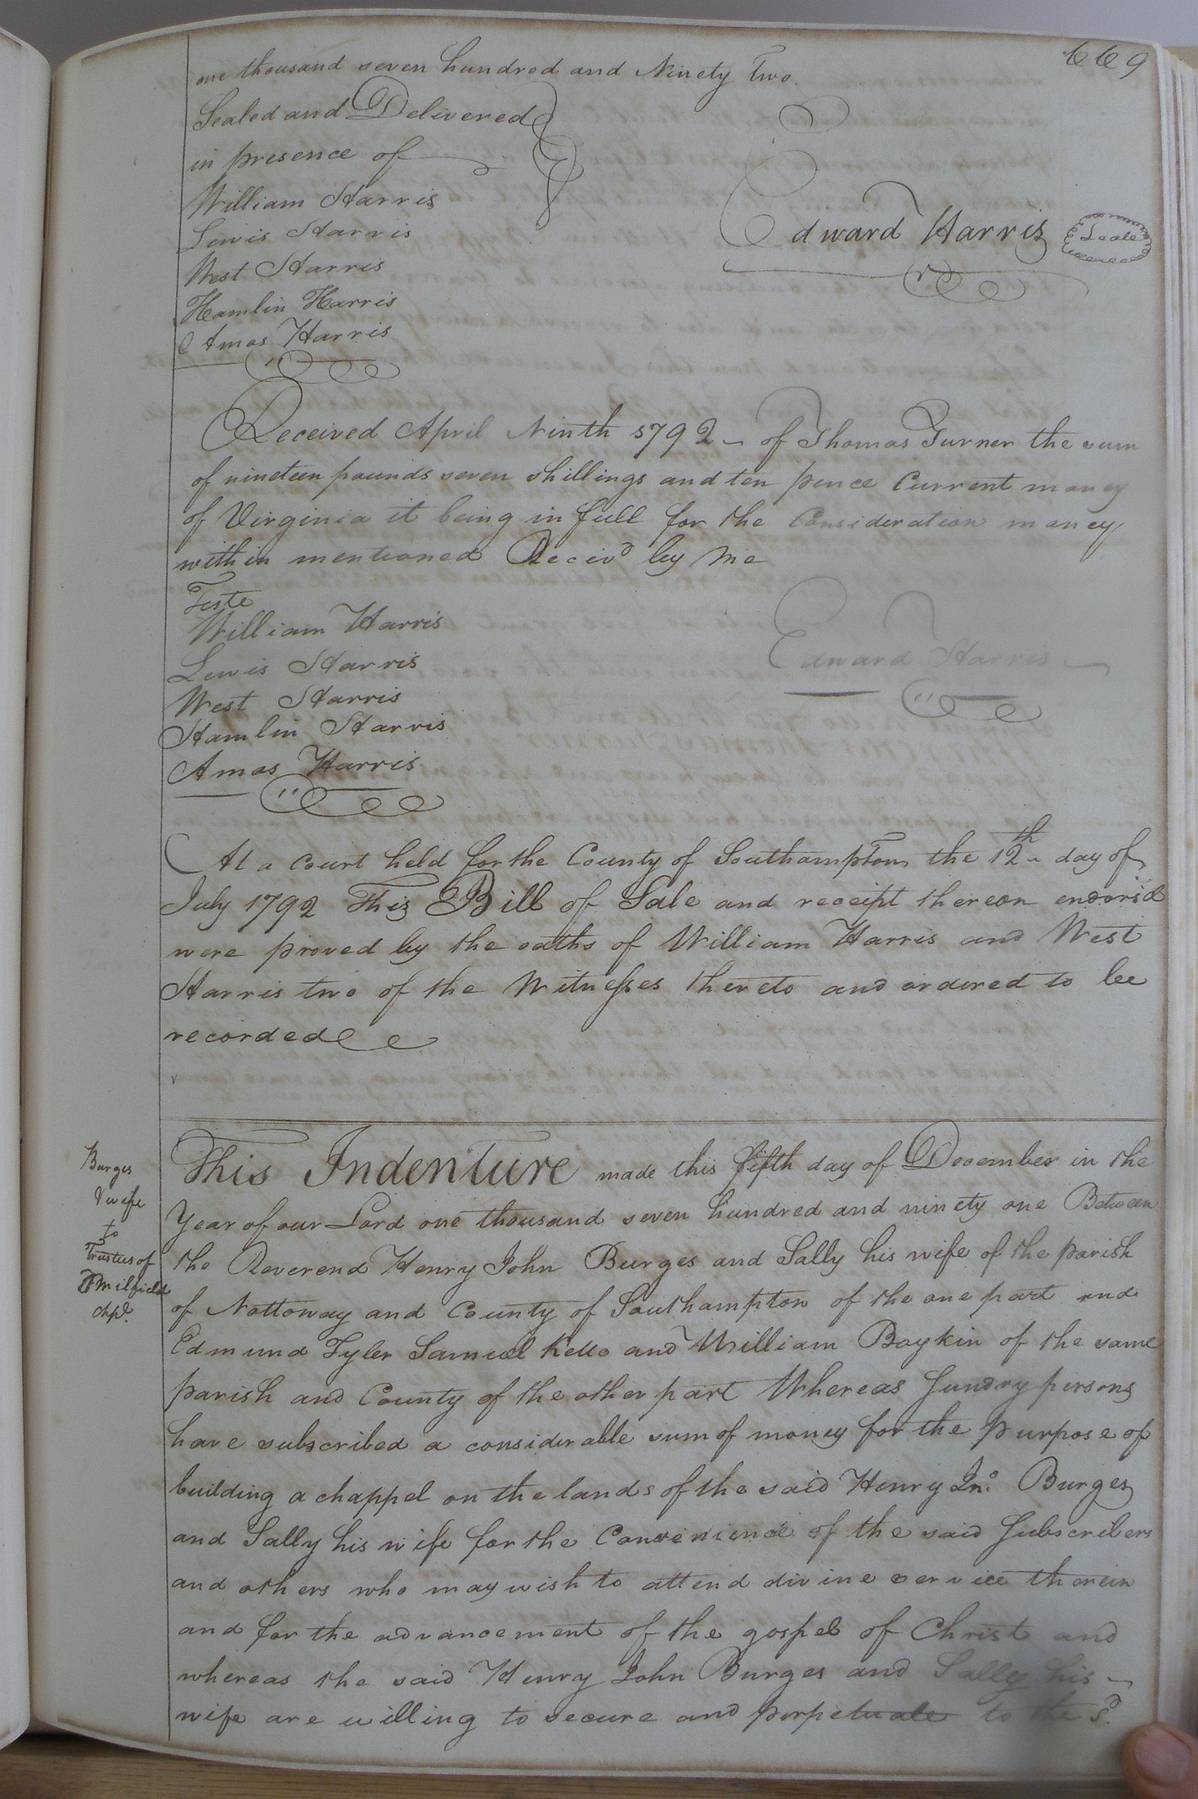 669
one thousand seven hundred and Ninety Two.
Sealed and Delivered
in presence of
William Harris
Lewis Harris
West Harris
Hamlin Harris
Amos Harris
Edward Harris Seale
Received April Ninth 1792 of Thomas Turner the sum
of nineteen pounds seven shillings and ten pence Current money
of Virginia it being in full for the Consideration money
within mentioned Receivd by me
Teste
William Harris
Lewis Harris
West Harris
Hamlin Harris
Amos Harris
Edward Harris
At a Court held for the County of Southampton the 12th day of
July 1792 This Bill of Sale and receipt thereon endors'd
were proved by the oaths of William Harris and West
Harris two of the Witnesses thereto and ordered to be
recorded
Burges
& wife
to
Trustees of
Milfield
Chpl.
This Indenture made this fifth day of December in the
Year of our Lord one thousand seven hundred and ninety one Between
the Reverend Henry John Burges and Sally his wife of the parish
of Nottoway and County of Southampton of the one part and
Edmund Tyler Samuel Kello and William Boykin of the same
parish and County of the other part Whereas Sundry persons
have subscribed a considerable sum of money for the purpose of
building a chappel on the lands of the said Henry Jno. Burges
and Sally his wife for the Convenience of the said Subscribers
and others who may wish to attend divine service therein
and for the advancement of the gospel of Christ and
whereas the said Henry John Burges and Sally his
wife are willing to secure and perpetuate to the sd.